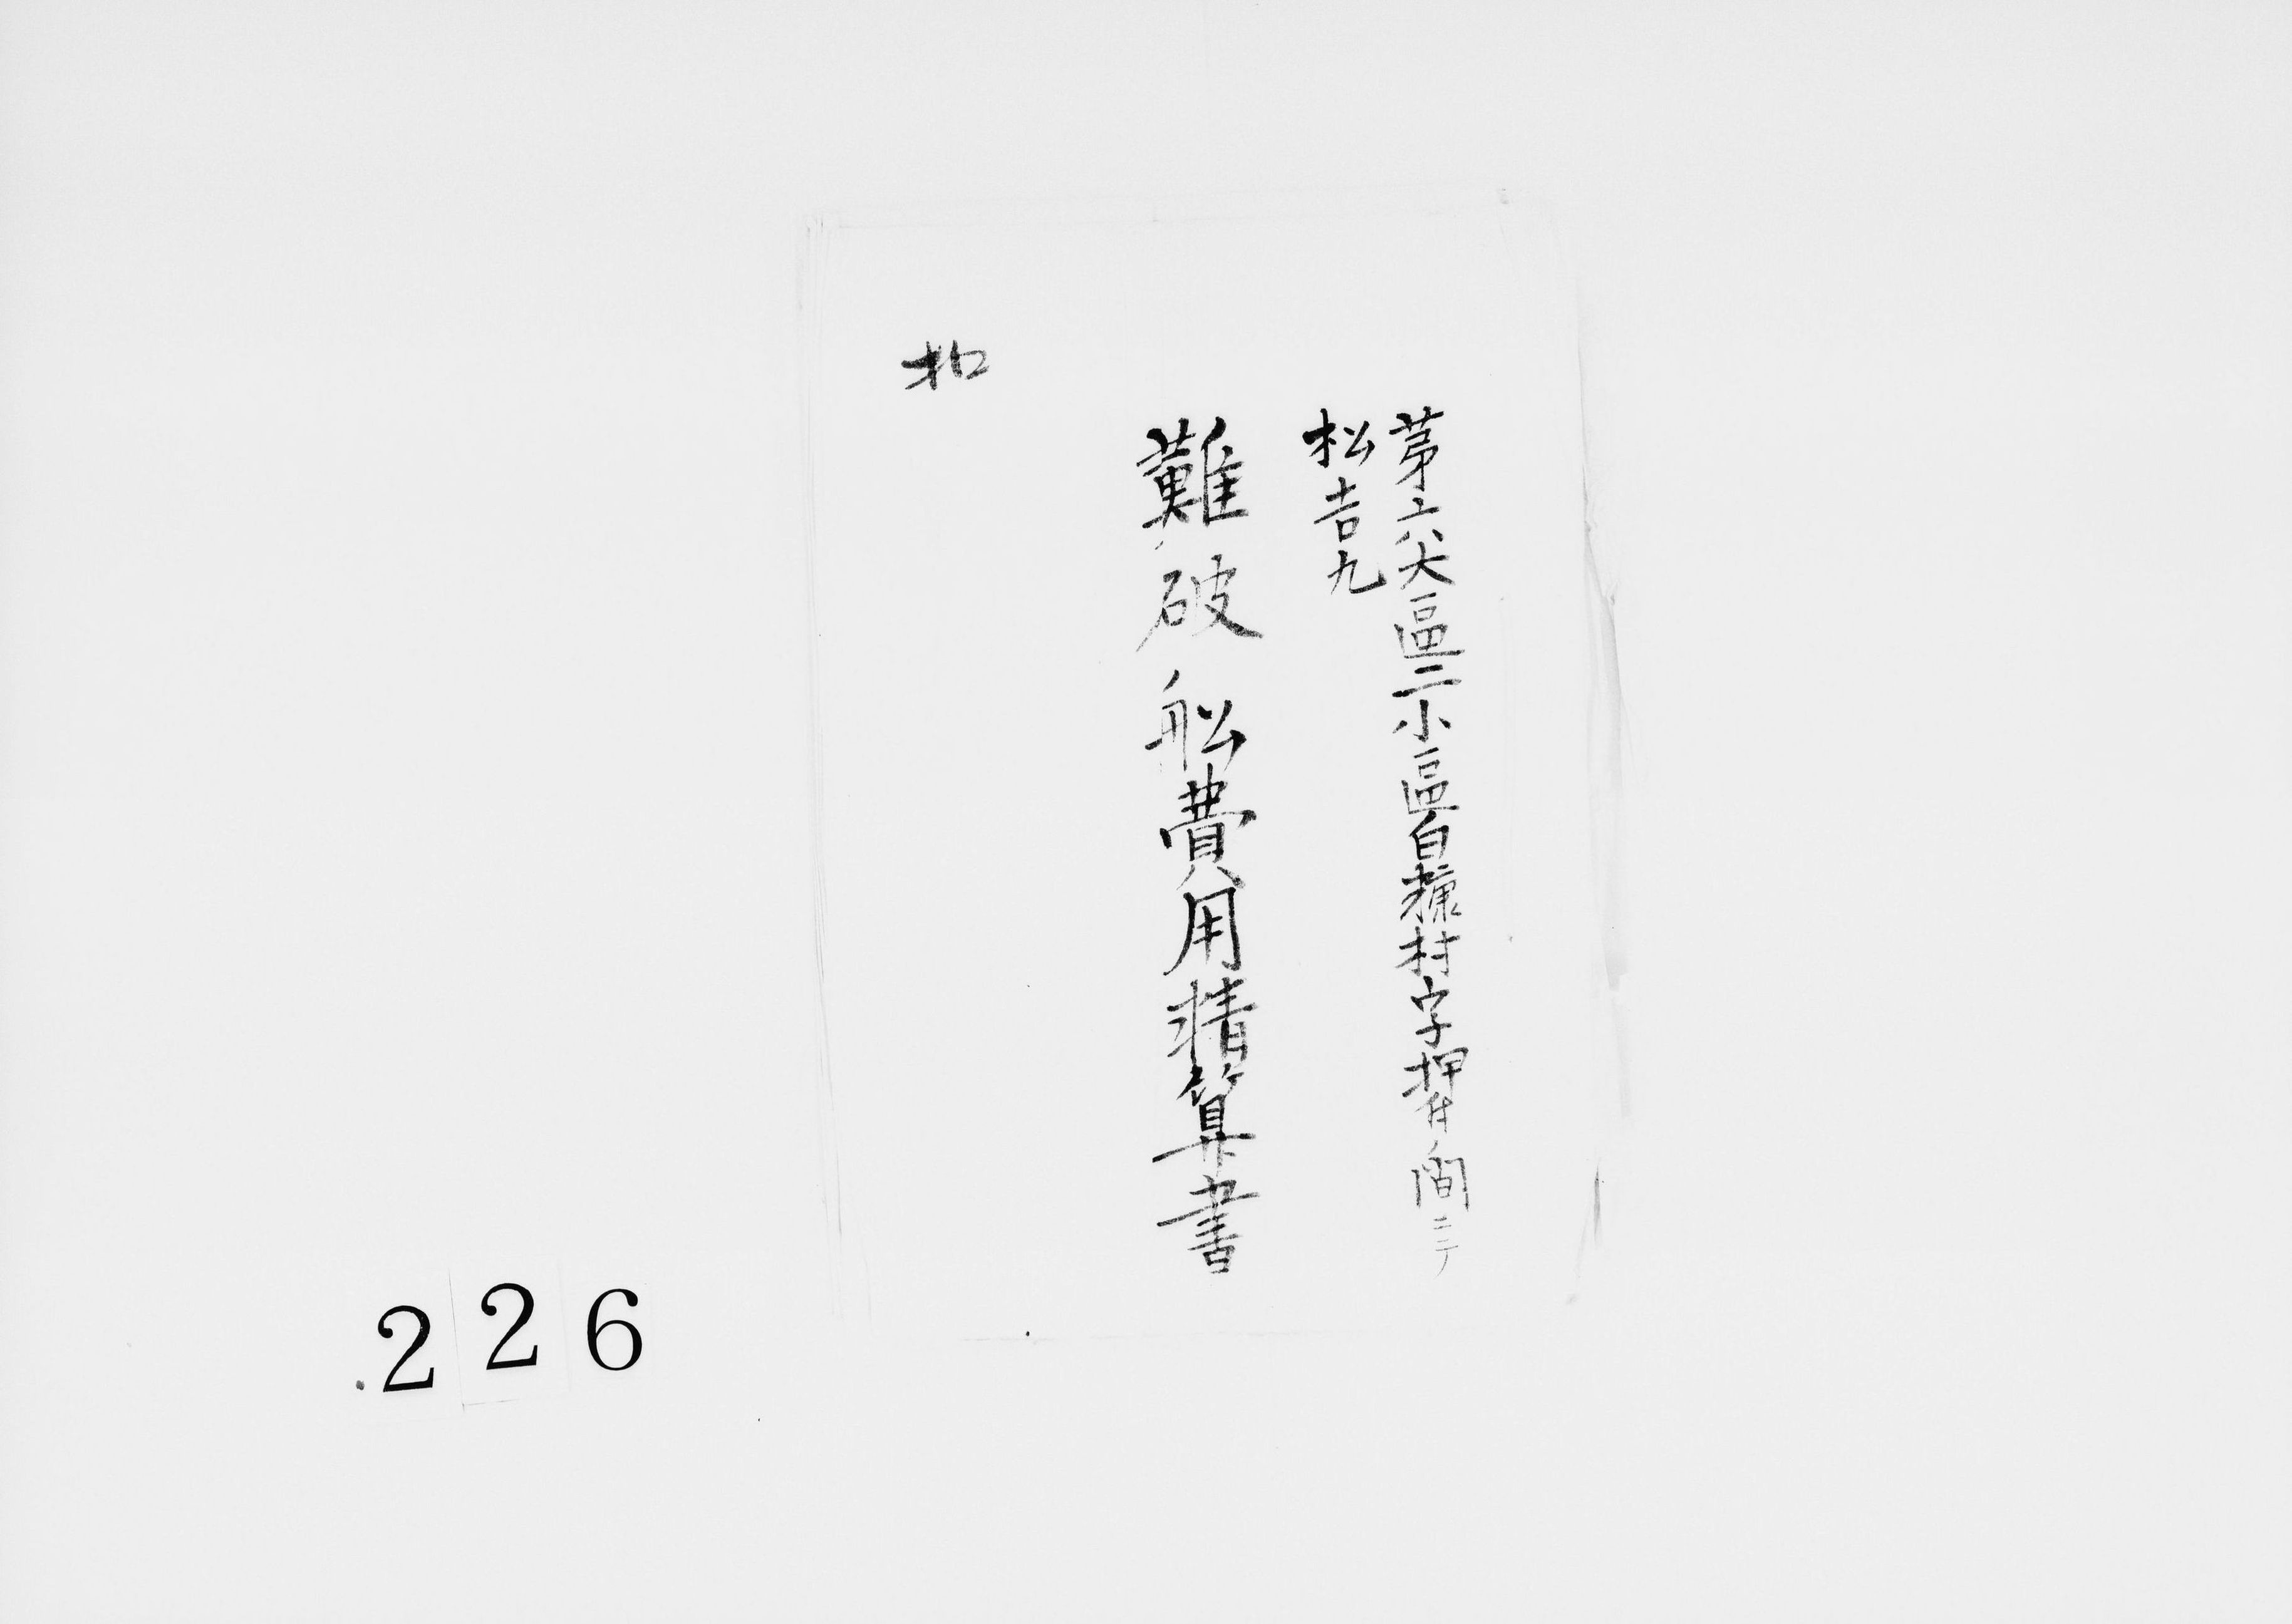 第六大區二小區白糠村字押付間ニテ
松吉丸
難破舩費用精算書
扣
226